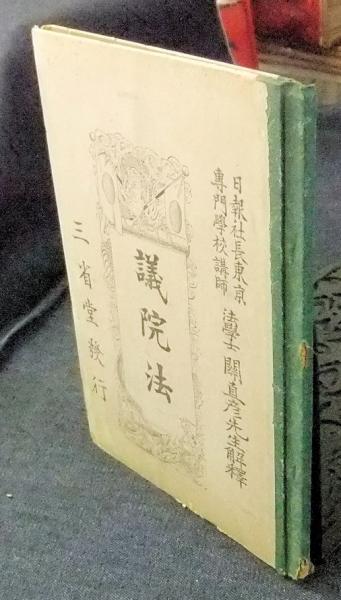 日報社長東京
專門學校講師
法學士 關直彦先生解釋
議院法
三省堂發行